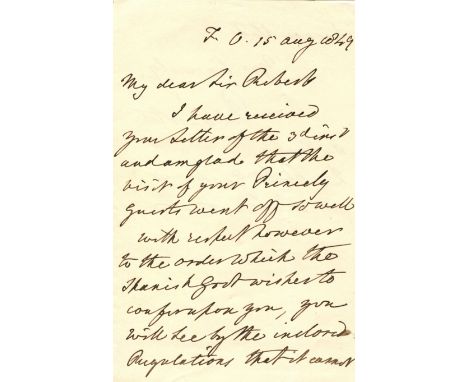 F. O. 15 aug 1849
My dear Sir Robert
I have received
your Letter of the 3d inst
and am glad that the
visit of your Princely
Guests went off so well
with respect however
to the order which the
Spanish Govt wishes to
confer upon you, you
will see by the inclosed
Regulations that it cannot